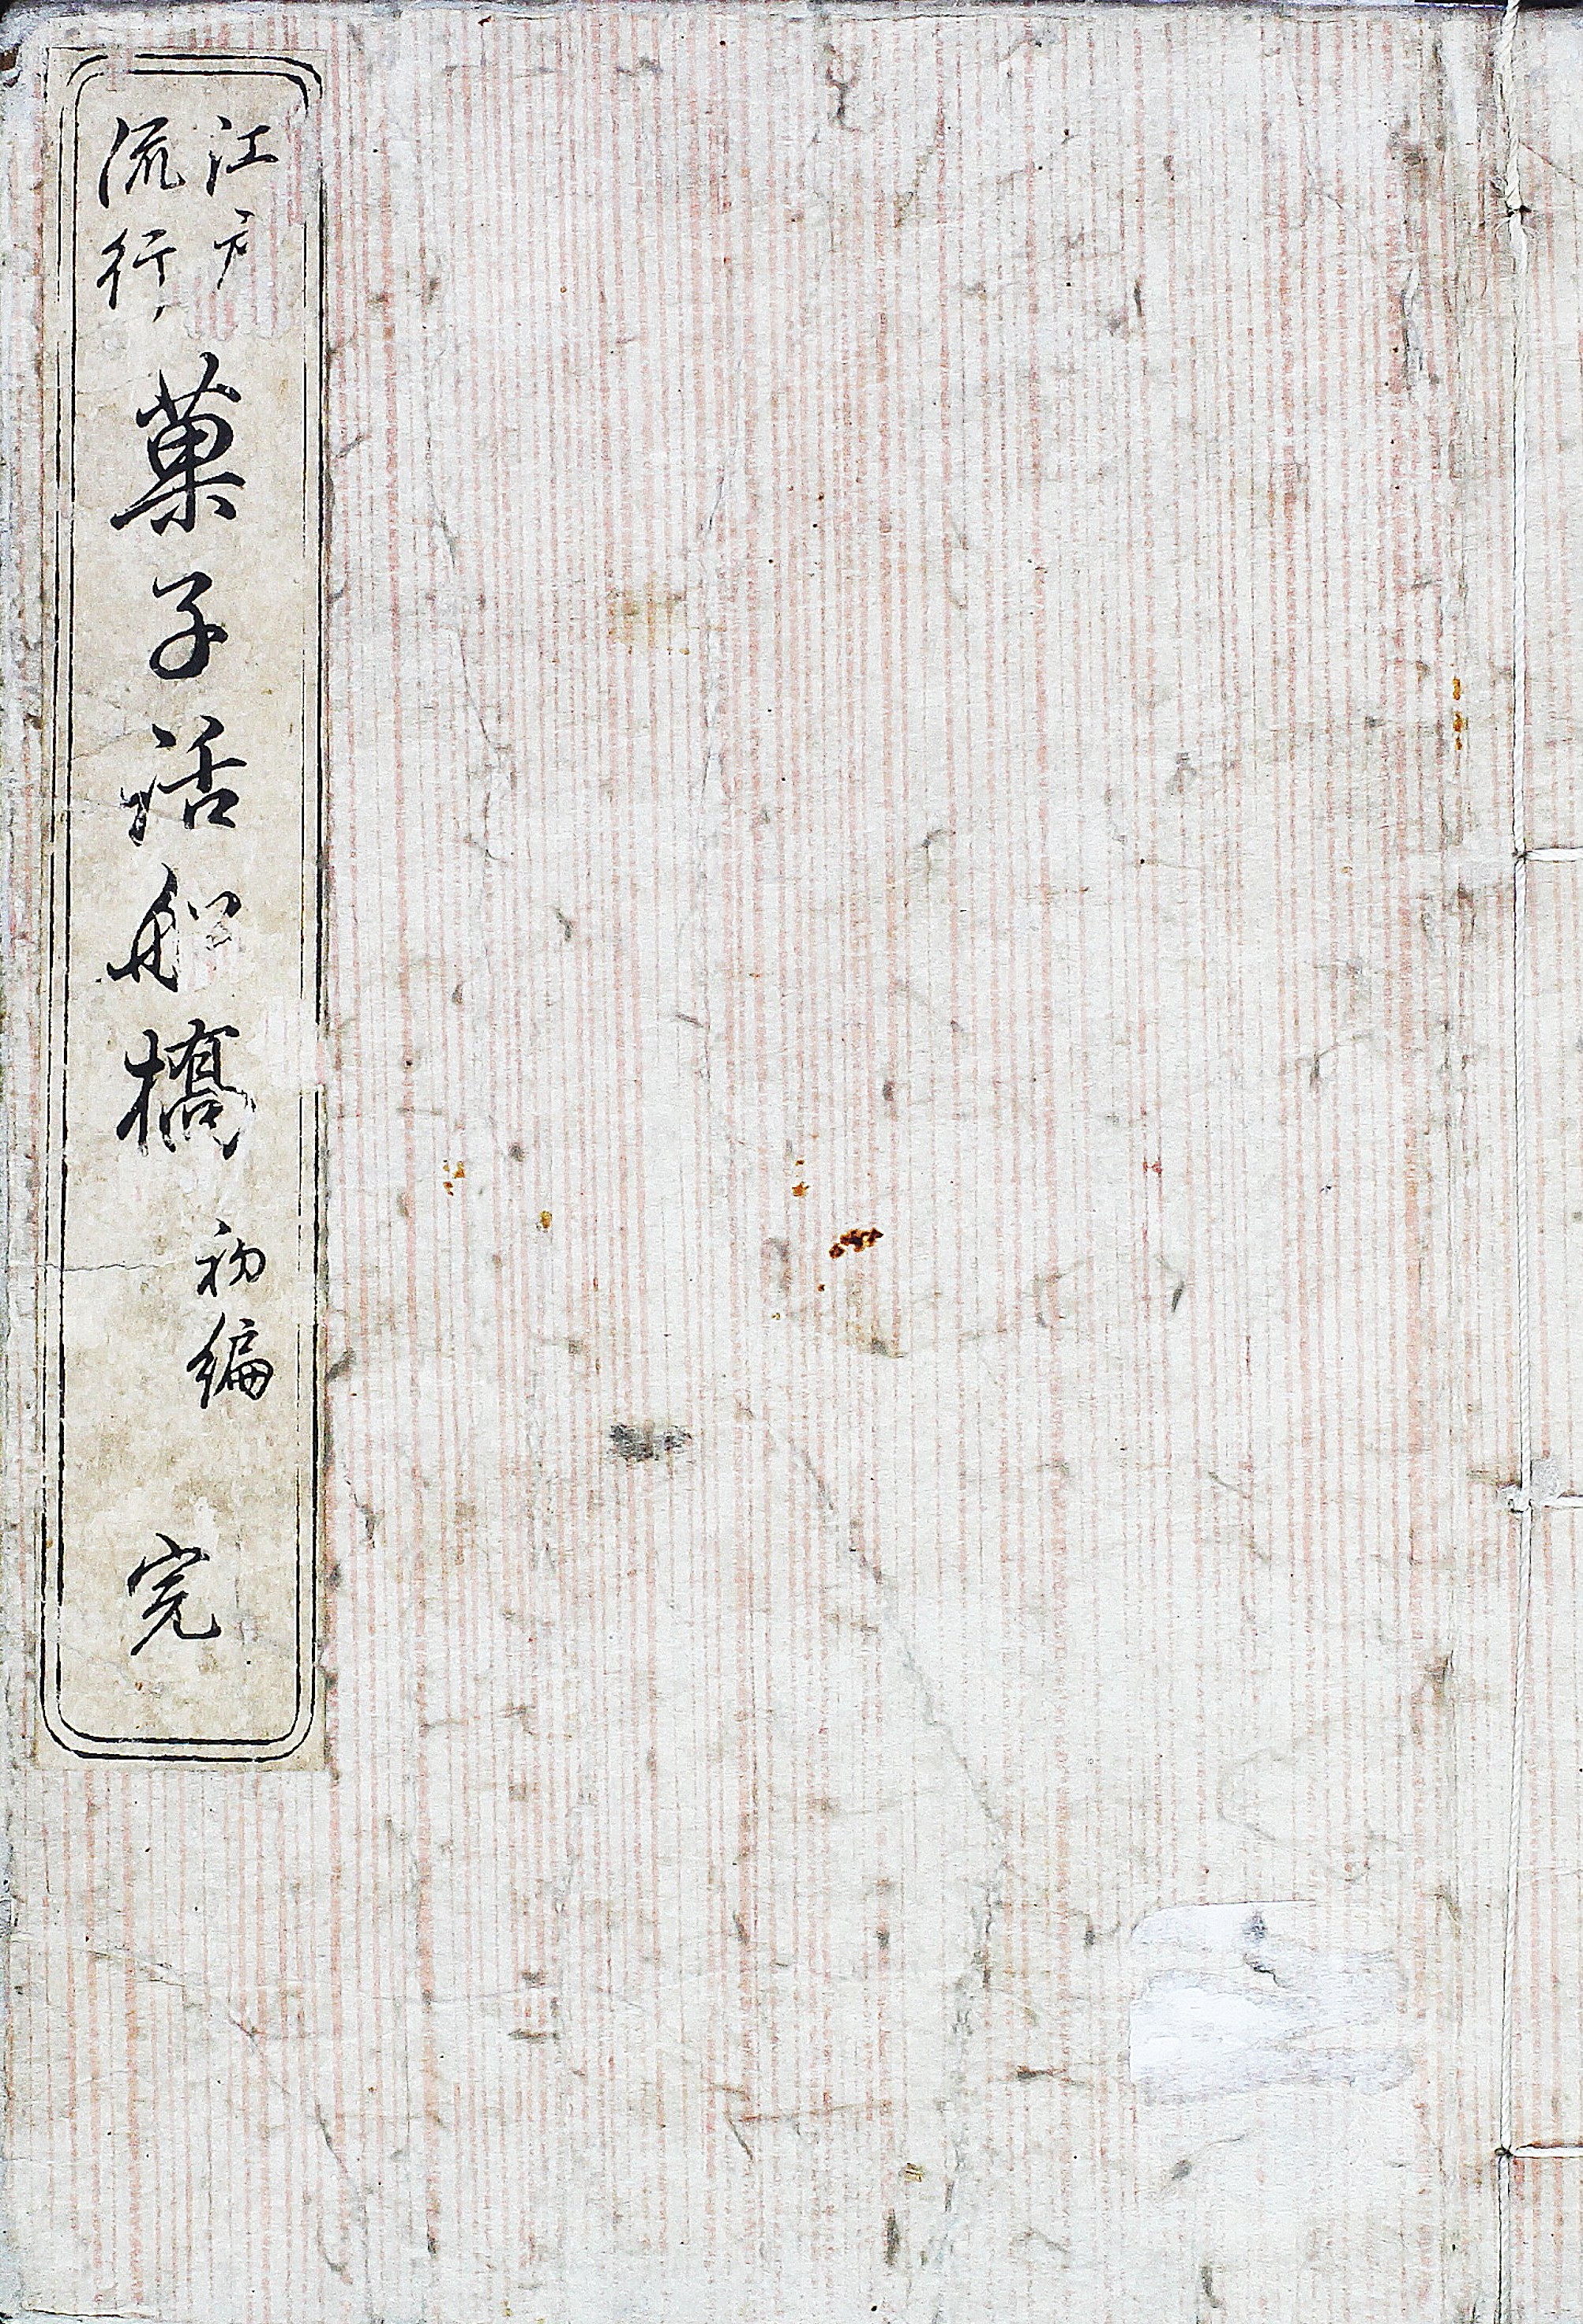 江戸
流行
菓子話船橋
初編
完